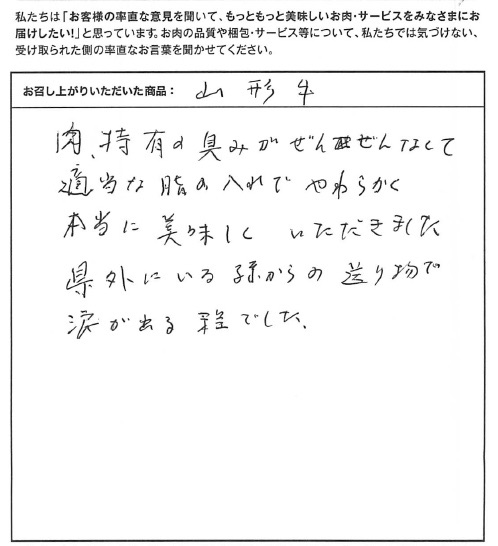 私たちは「お客様の率直な意見を聞いて、もっともっと美味しいお肉・サービスをみなさまにお
届けしたい！」と思っています。お肉の品質や梱包・サービス等について、私たちでは気づけない、
受け取られた側の率直なお言葉を聞かせてください。
お召し上がりいただいた商品： 山形牛
肉、持有の臭みがぜんぜんなくて
適当な脂の入れでやわらかく
本当に美味しくいただきました
県外にいる孫からの送り物で
涙が出る程でした。